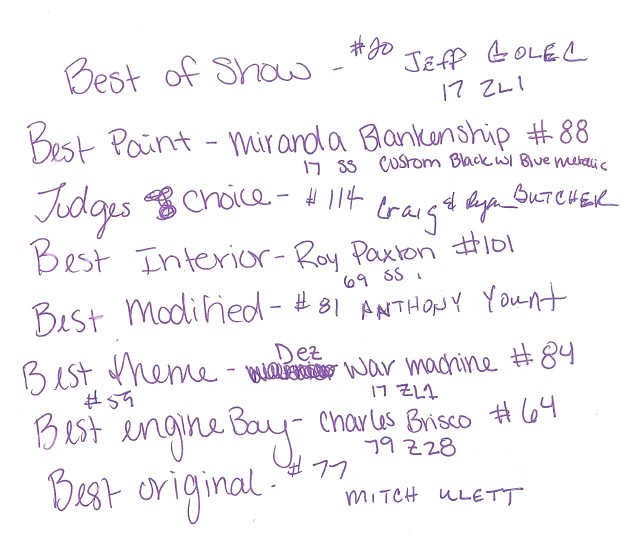 Best of Show - #20 JEFF GOLEC
17 ZL1
Best Paint - Miranda Blankenship #88
17 SS Custom Black w/ Blue metallic
Judges Choice - #114 Craig & Ryan BUTCHER
Best Interior - Roy Paxton #101
69 SS
Best Modified - #81 ANTHONY Yount
Best theme - Dez War machine #84
#59 17 ZL1
Best engine Bay - Charles Brisco #64
79 Z28
Best original - #77
MITCH ULETT